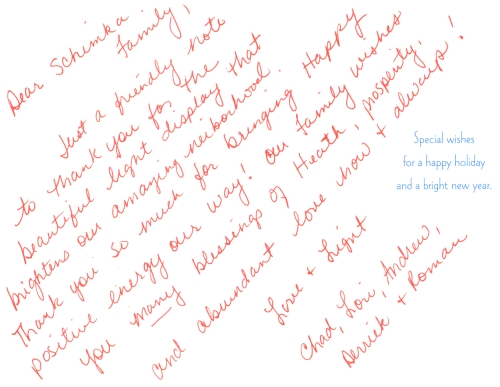 Dear Schimka Family,
Just a friendly note
to thank you for the
beautiful light display that
brightens our amazing neiborhood.
Thank you so much for bringing Happy
positive energy our way! Our family wishes
you many blessings of Heath, prosperity,
and abundant love now + always!
Love + Light
Chad, Lori, Andrew,
Derrick + Roman
Special wishes
for a happy holiday
and a bright new year.